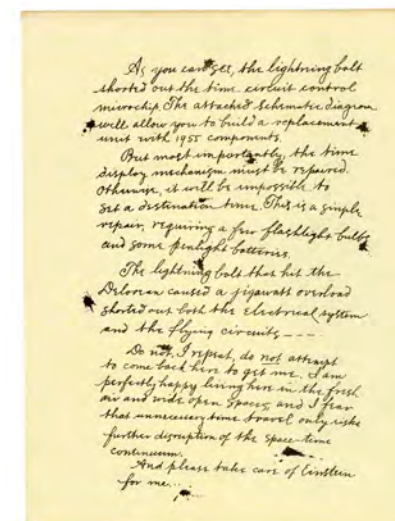 As you can see, the lightning bolt
shorted out the time circuit control
microchip. The attached schematic diagram
will allow you to build a replacement
unit with 1955 components.
But most importantly, the time
display mechanism must be repaired.
Otherwise, it will be impossible to
set a destination time. This is a simple
repair, requiring a few flashlight bulbs
and some penlight batteries.
The lightning bolt that hit the
Delorean caused a jigawatt overload
shorted out both the electrical system
and the flying circuits ----
Do not, I repeat, do not attempt
to come back here to get me. I am
perfectly happy living here in the fresh
air and wide open spaces, and I fear
that unnecessary time travel only risks
further disruption of the space-time
continuum.
And please take care of Einstein
for me...